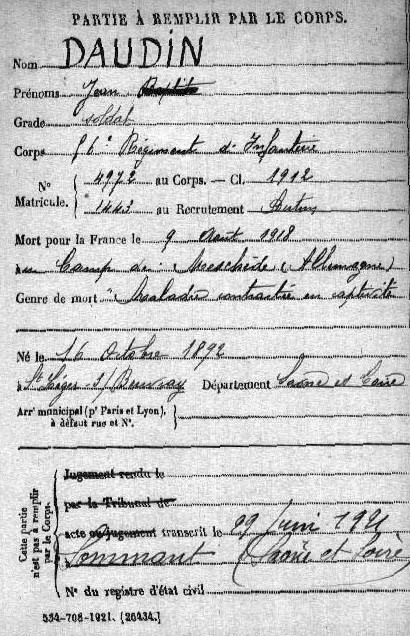 PARTIE À REMPLIR PAR LE CORPS.
Nom DAUDIN
Prénoms Jean
Grade soldat
Corps 56e Régiment d'Infanterie
N° Matricule. { 4972 au Corps. — Cl. 1912
1443 au Recrutement Autun
Mort pour la France le 9 Août 1918
au Camp de Meschède (Allemagne)
Genre de mort Maladie contractée en captivité
Né le 16 Octobre 1892
à St Léger-s/Beuvray Département Saône et Loire
Arrt municipal (pr Paris et Lyon), à défaut rue et N°.
Cette partie n'est pas à remplir par le Corps.
Jugement rendu le
par le Tribunal de
acte ou jugement transcrit le 29 Juin 1921
Sommant (Saône et Loire)
N° du registre d'état civil
534-708-1921. [26434.]